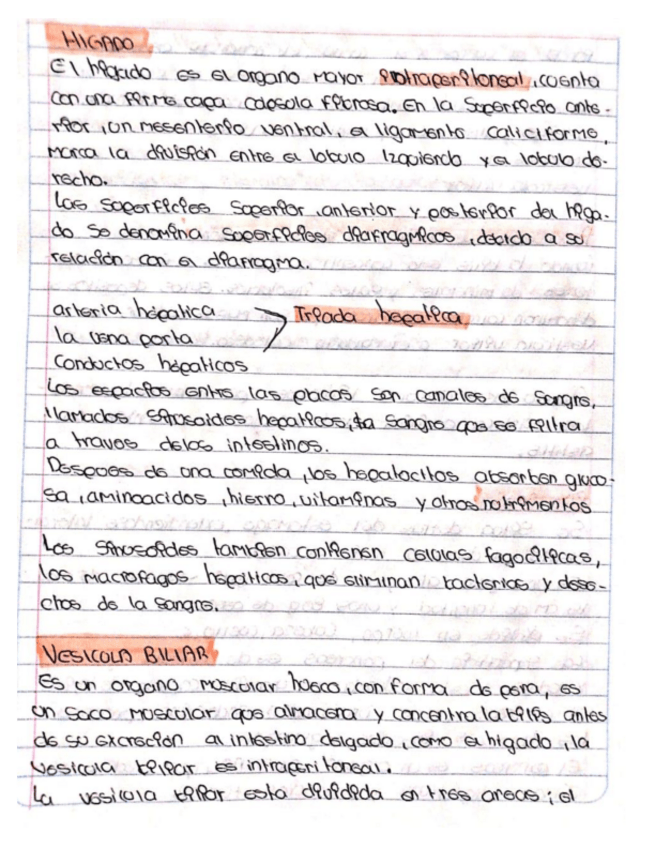 HIGADO
El higado es el organo mayor intraperitoneal, cuenta
con una firme capa capsula fibrosa. En la superficie ante-
rior, un mesenterio ventral, el ligamento caliciforme,
marca la división entre el lobulo izquierdo y el lobulo de-
recho.
Las superficies superior, anterior y posterior del higa-
do se denomina superficies diafragmicas, debido a su
relación con el diafragma.
arteria hepatica
Triada hepatica
la vena porta
Conductos hepaticos
Los espacios entre las placas son canales de sangre,
llamados sinusoides hepaticos, la sangre que se filtra
a traves de los intestinos.
Despues de una comida, los hepatocitos absorben gluco-
sa, aminoacidos, hierro, vitaminas y otros nutrimentos
Los sinusoides tambien contienen celulas fagociticas,
los macrofagos hepaticos, que eliminan bacterias y dese-
chos de la sangre.
VESICULA BILIAR
Es un organo muscular hueco, con forma de pera, es
un saco muscular que almacena y concentra la bilis antes
de su excreción al intestino delgado, como el higado, la
vesicula biliar es intraperitoneal.
La vesicula biliar esta dividida en tres areas; el